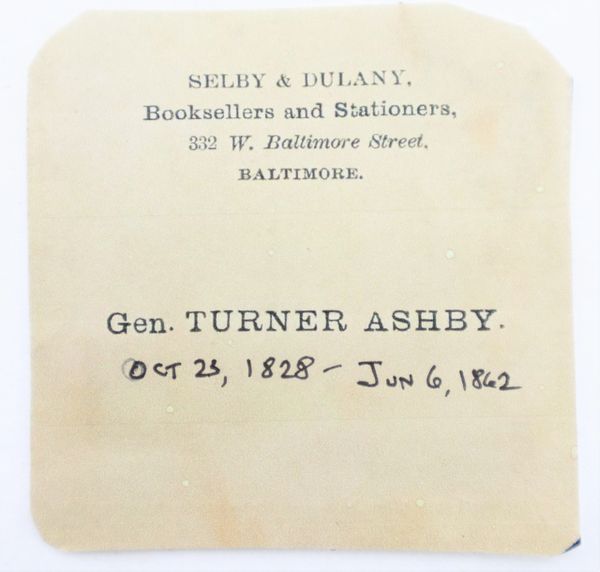 SELBY & DULANY,
Booksellers and Stationers,
332 W. Baltimore Street,
BALTIMORE.
Gen. TURNER ASHBY.
OCT 23, 1828 – JUN 6, 1862